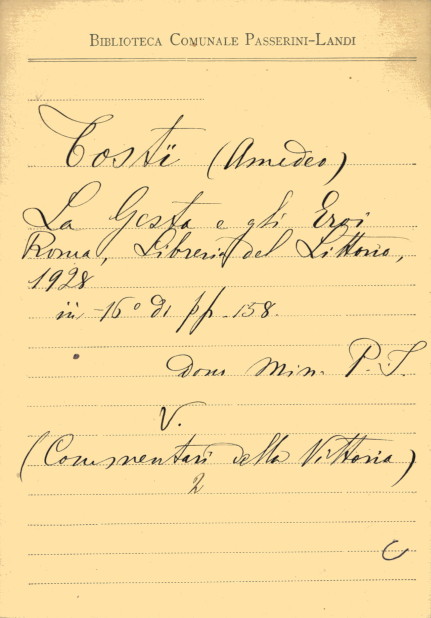 BIBLIOTECA COMUNALE PASSERINI-LANDI
Tosti (Amedeo)
La Gesta e gli Eroi
Roma, Libreria del Littorio,
1928
in -16° di pp. 158.
Dono Min. P. I.
V.
(Commentari della Vittoria)
2
C